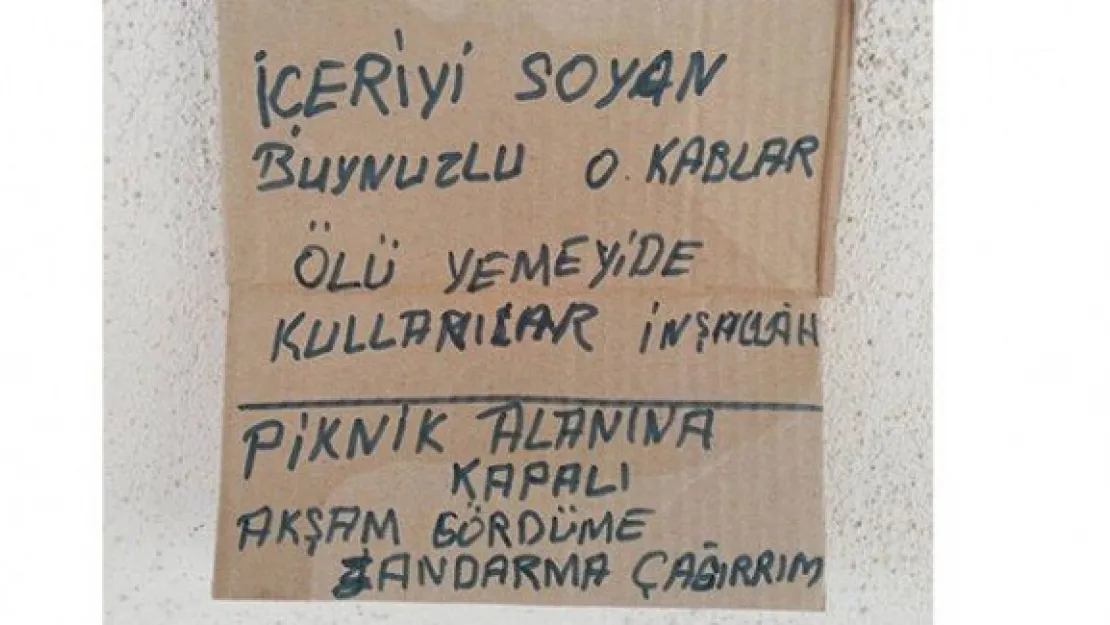 İÇERİYİ SOYAN
BUYNUZLU O. KABLAR
ÖLÜ YEMEYİDE
KULLANILAR İNŞALLAH
PİKNİK ALANINA
KAPALI
AKŞAM GÖRDÜME
JANDARMA ÇAĞIRRIM